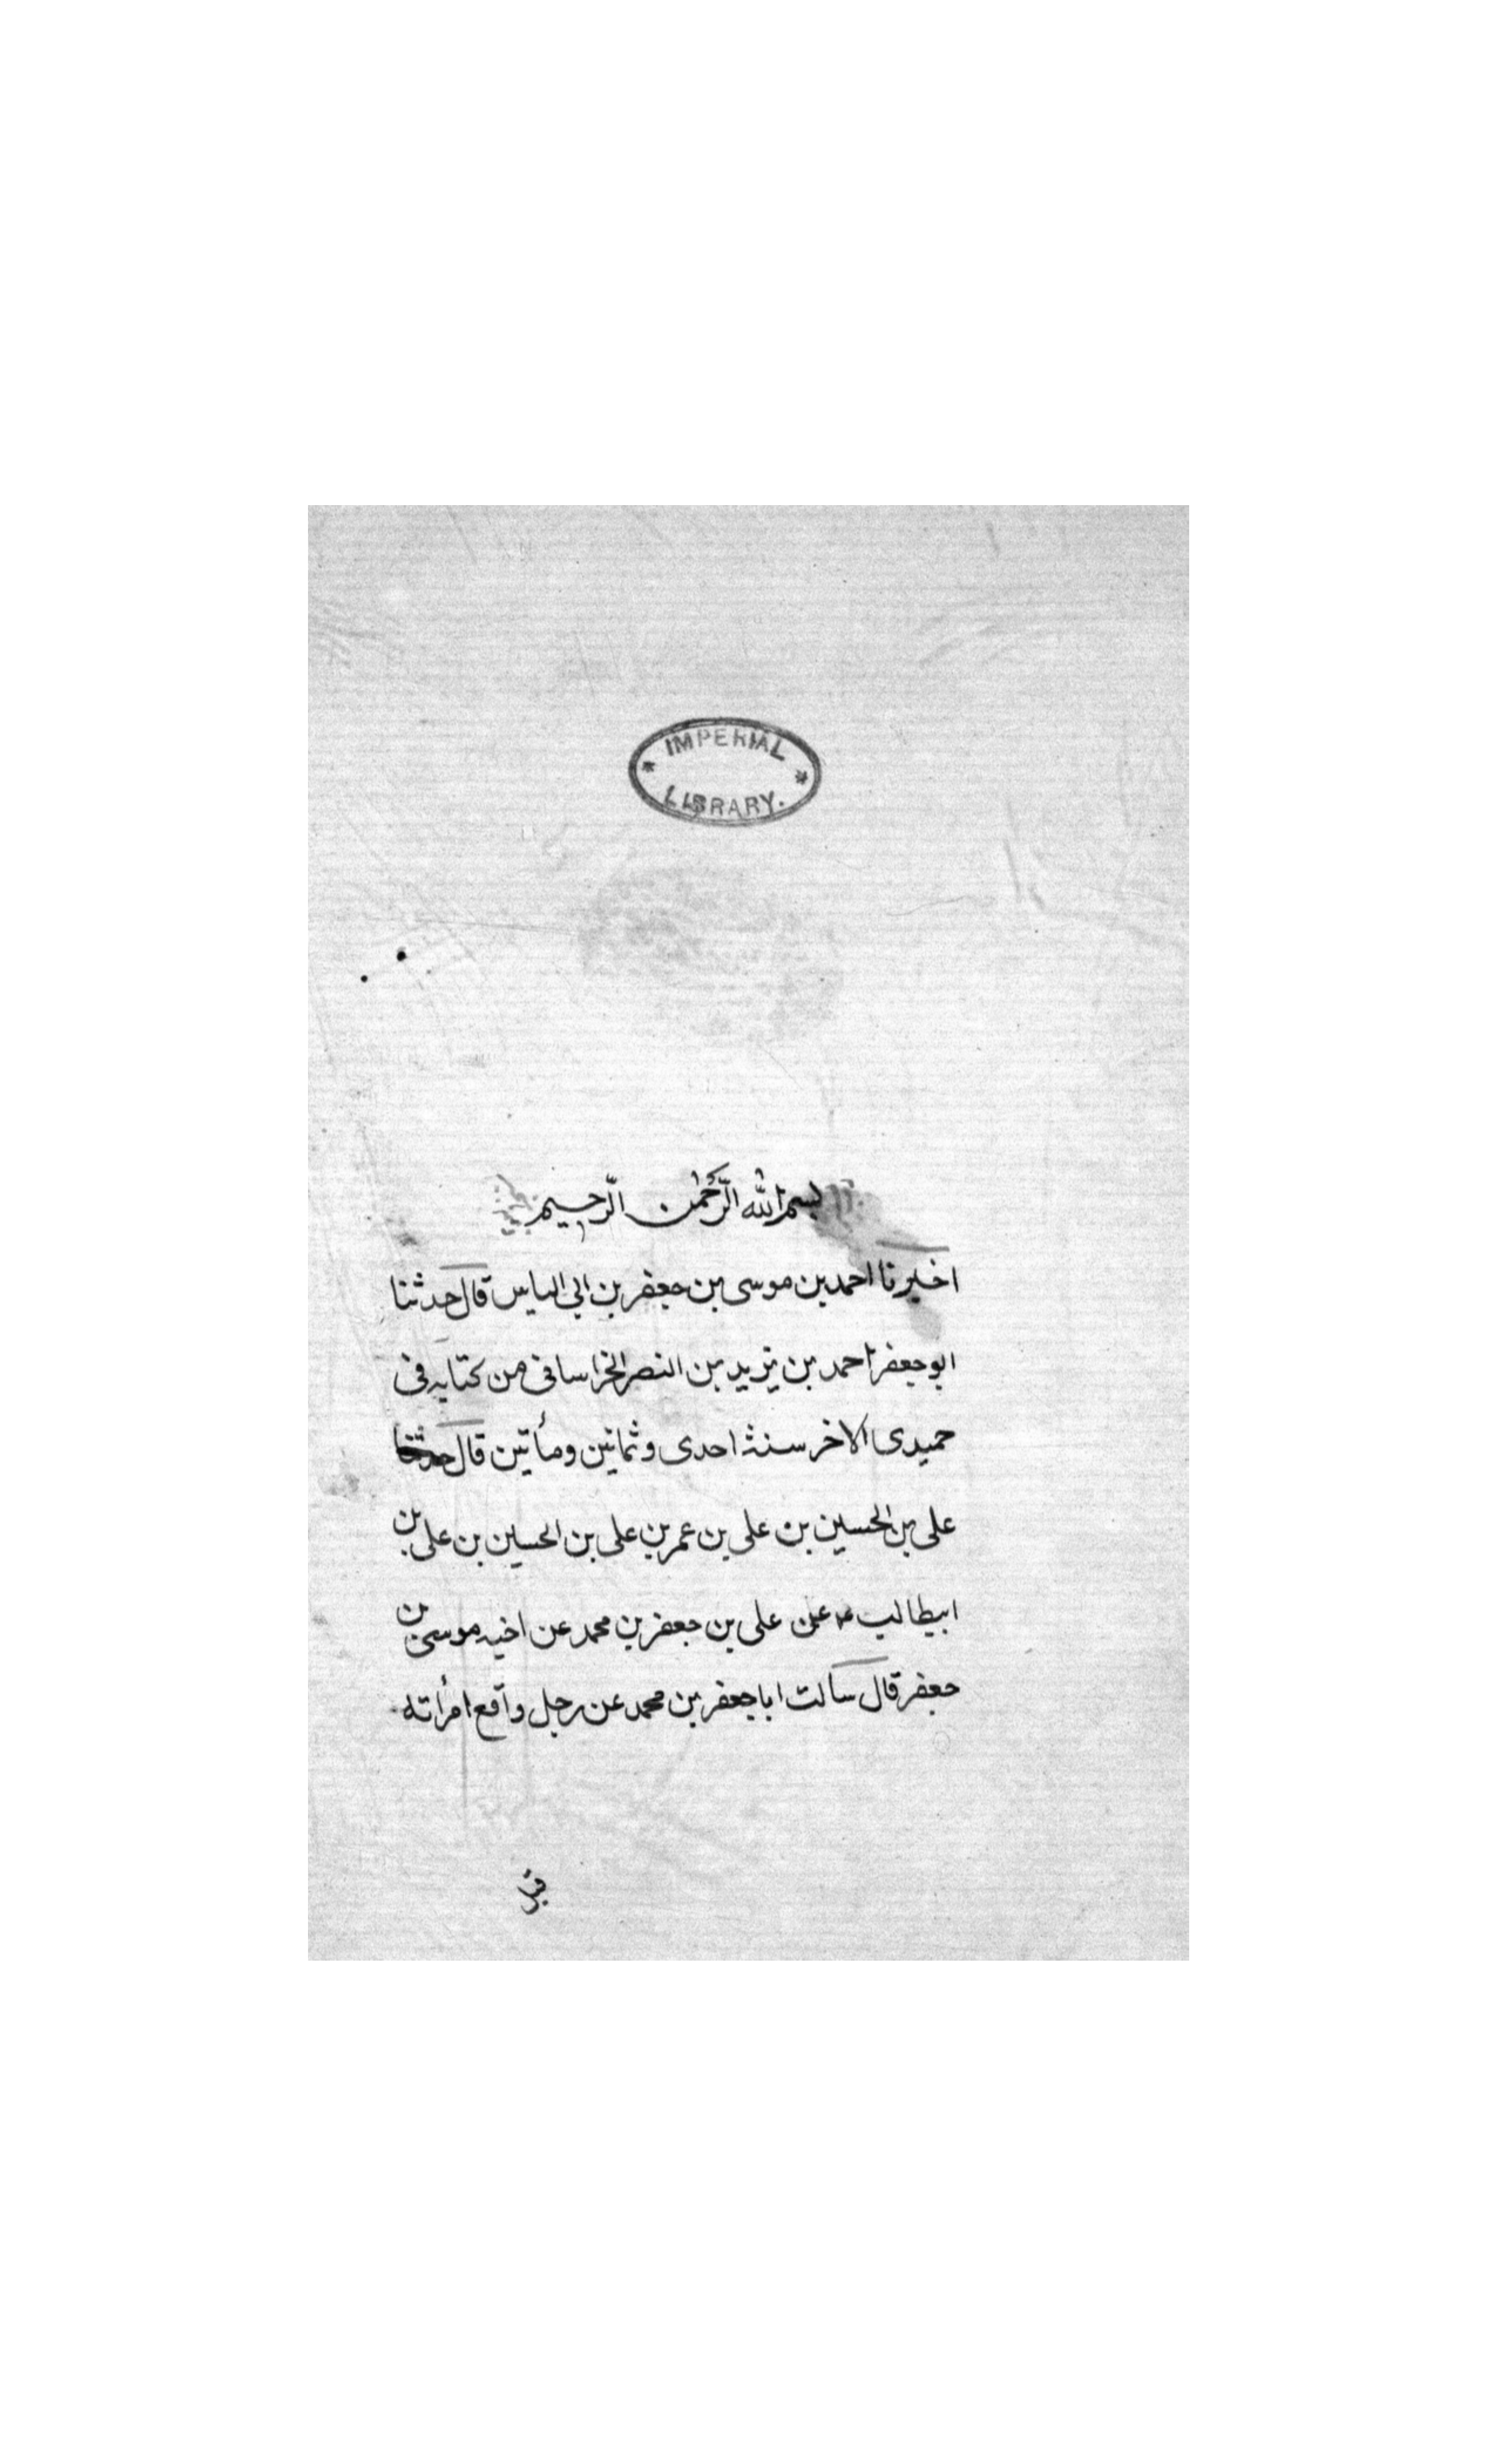 IMPERIAL
LIBRARY.
بسم الله الرَّحْمٰن الرَّحيم
اخبرنا احمد بن موسى بن جعفر بن ابي العباس قال حدثنا
ابو جعفر احمد بن يزيد بن النصر الخراساني من كتابه في
جميدى الاخر سنة احدى وثمانين ومأتين قال حدثنا
على بن الحسين بن على بن عمر بن على بن الحسين بن على بن
ابيطالب عن على بن جعفر بن محمد عن اخيه موسى بن
جعفر قال سالت ابا جعفر بن محمد عن رجل واقع امرأته
قبل